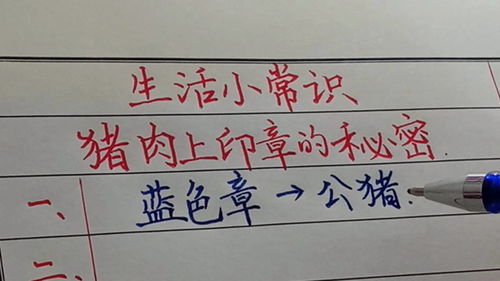 生活小常识
猪肉上印章的秘密.
一、蓝色章→公猪.
二、